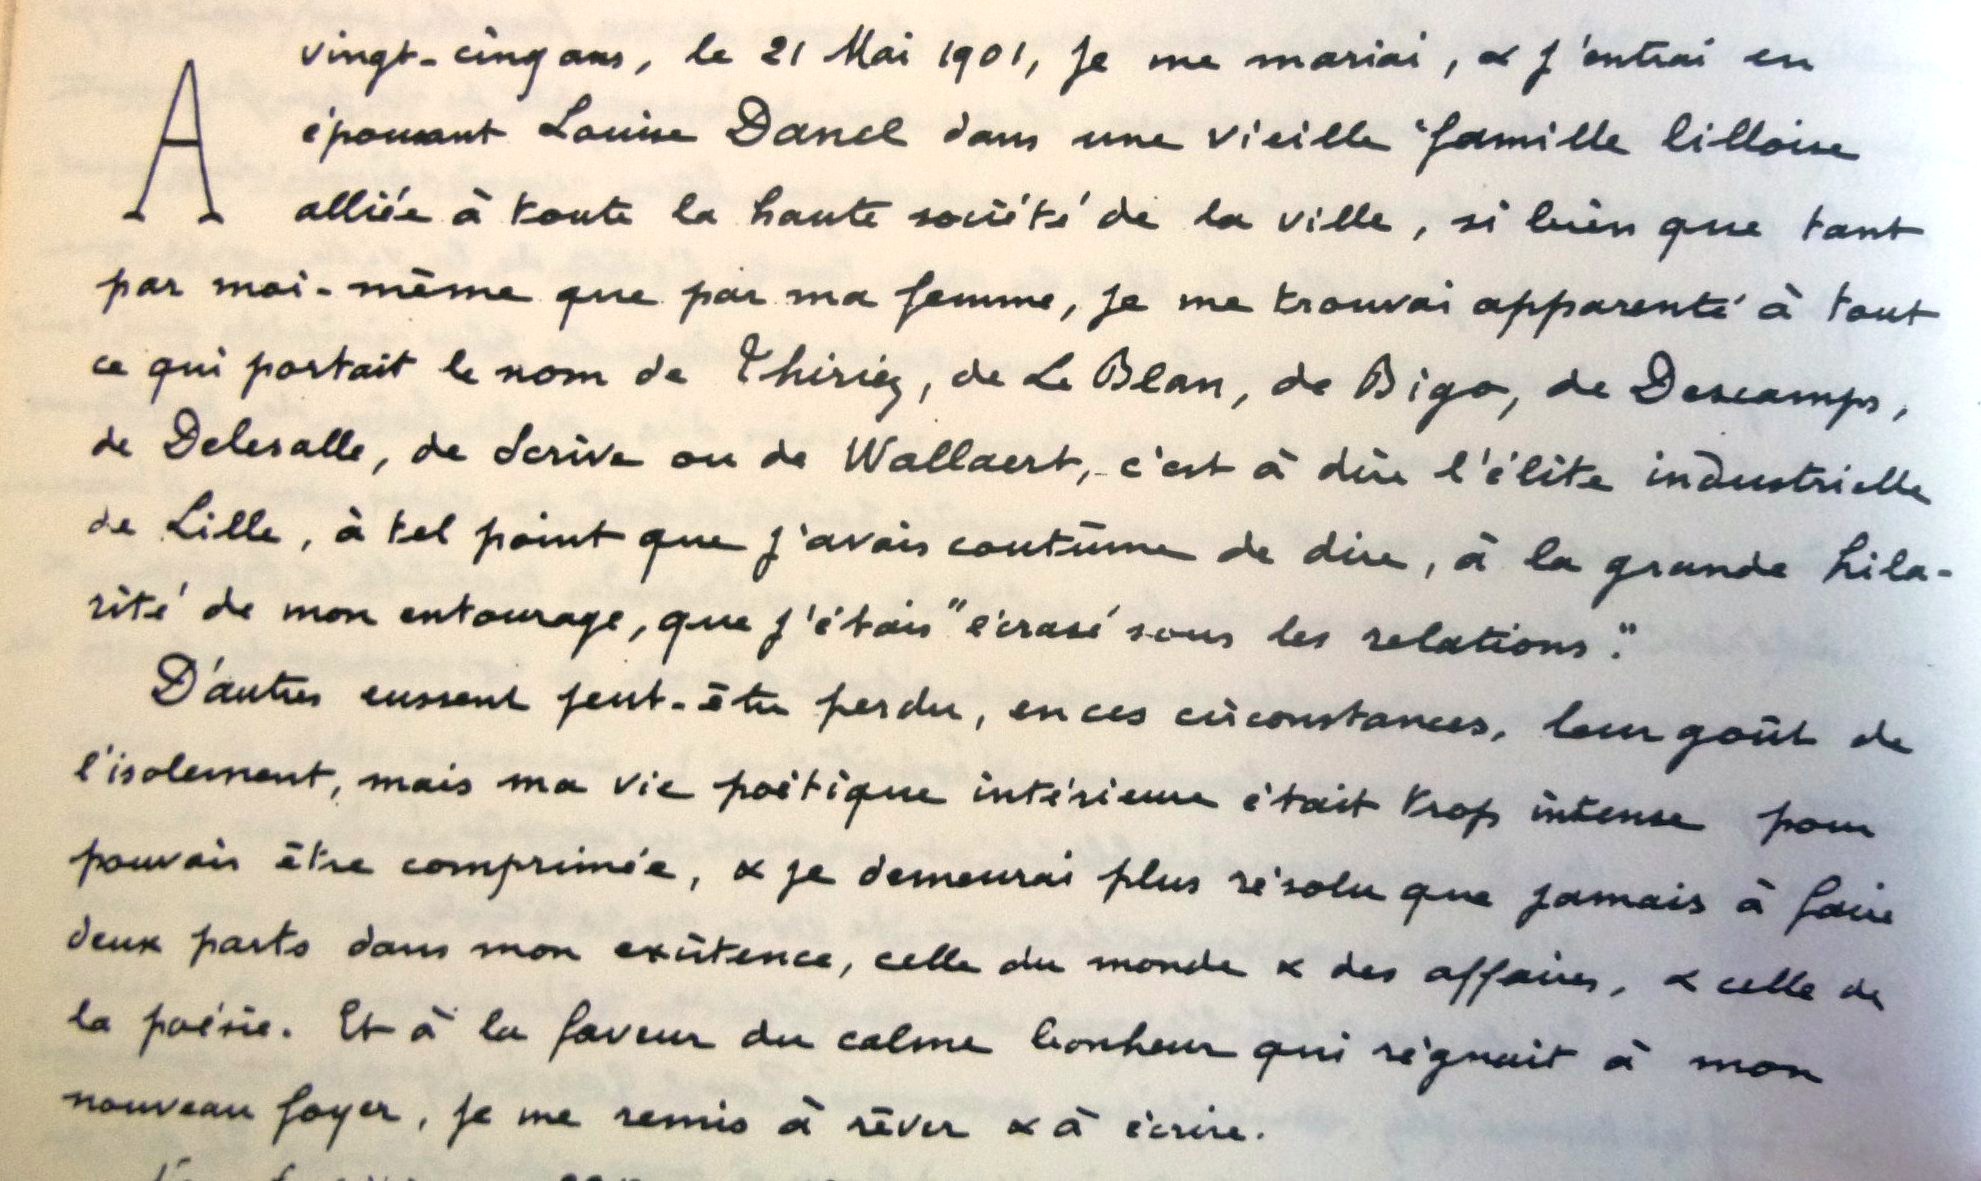 A vingt-cinq ans, le 21 Mai 1901, je me mariai, & j'entrai en
épousant Louise Danel dans une vieille famille lilloise
alliée à toute la haute société de la ville, si bien que tant
par moi-même que par ma femme, je me trouvai apparenté à tout
ce qui portait le nom de Thiriez, de Le Blan, de Bigo, de Descamps,
de Delesalle, de Scrive ou de Wallaert, c'est à dire l'élite industrielle
de Lille, à tel point que j'avais coutume de dire, à la grande hila-
rité de mon entourage, que j'étais "écrasé sous les relations".
D'autres eussent peut-être perdu, en ces circonstances, leur goût de
l'isolement, mais ma vie poétique intérieure était trop intense pour
pouvoir être comprimée, & je demeurai plus résolu que jamais à faire
deux parts dans mon existence, celle du monde & des affaires, & celle de
la poésie. Et à la faveur du calme bonheur qui régnait à mon
nouveau foyer, je me remis à rêver & à écrire.